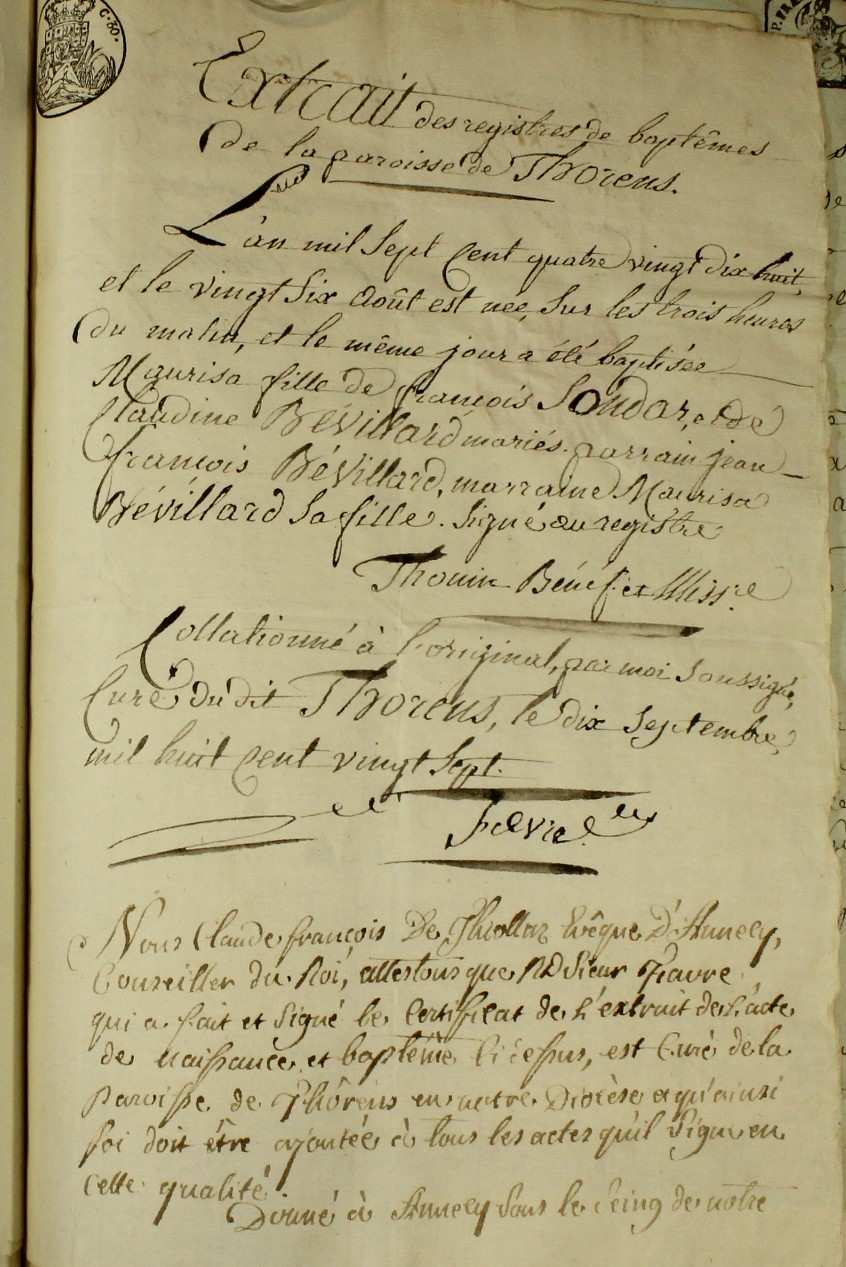 C. 30.
P. FR
Extrait des registres de baptêmes
de la paroisse de Thorens.
L'an mil sept cent quatre vingt dix huit,
et le vingt six Août est née, sur les trois heures
du matin, et le même jour a été baptisée
Maurisa fille de françois Sondar, et de
Claudine Bévillard mariés. parrain jean
françois Bévillard, marraine Maurisa
Bévillard sa fille. signé au registre
Thouin Bénéf. et Miss.re
Collationné à l'original, par moi soussigné,
Curé du dit Thorens, le dix septembre,
mil huit cent vingt sept.
Favre
Nous Claude françois De Thiollaz Evêque D'Annecy,
Conseiller du Roi, attestons que RD Sieur Favre
qui a fait et signé le certificat de L'extrait de L'acte
de naissance et baptême ci dessus, est Curé de la
Paroisse de Thôrens en notre Diocèse et qu'ainsi
foi doit être ajoutée à tous les actes qu'il signe en
cette qualité.
Donné à Annecy sous le seing de notre